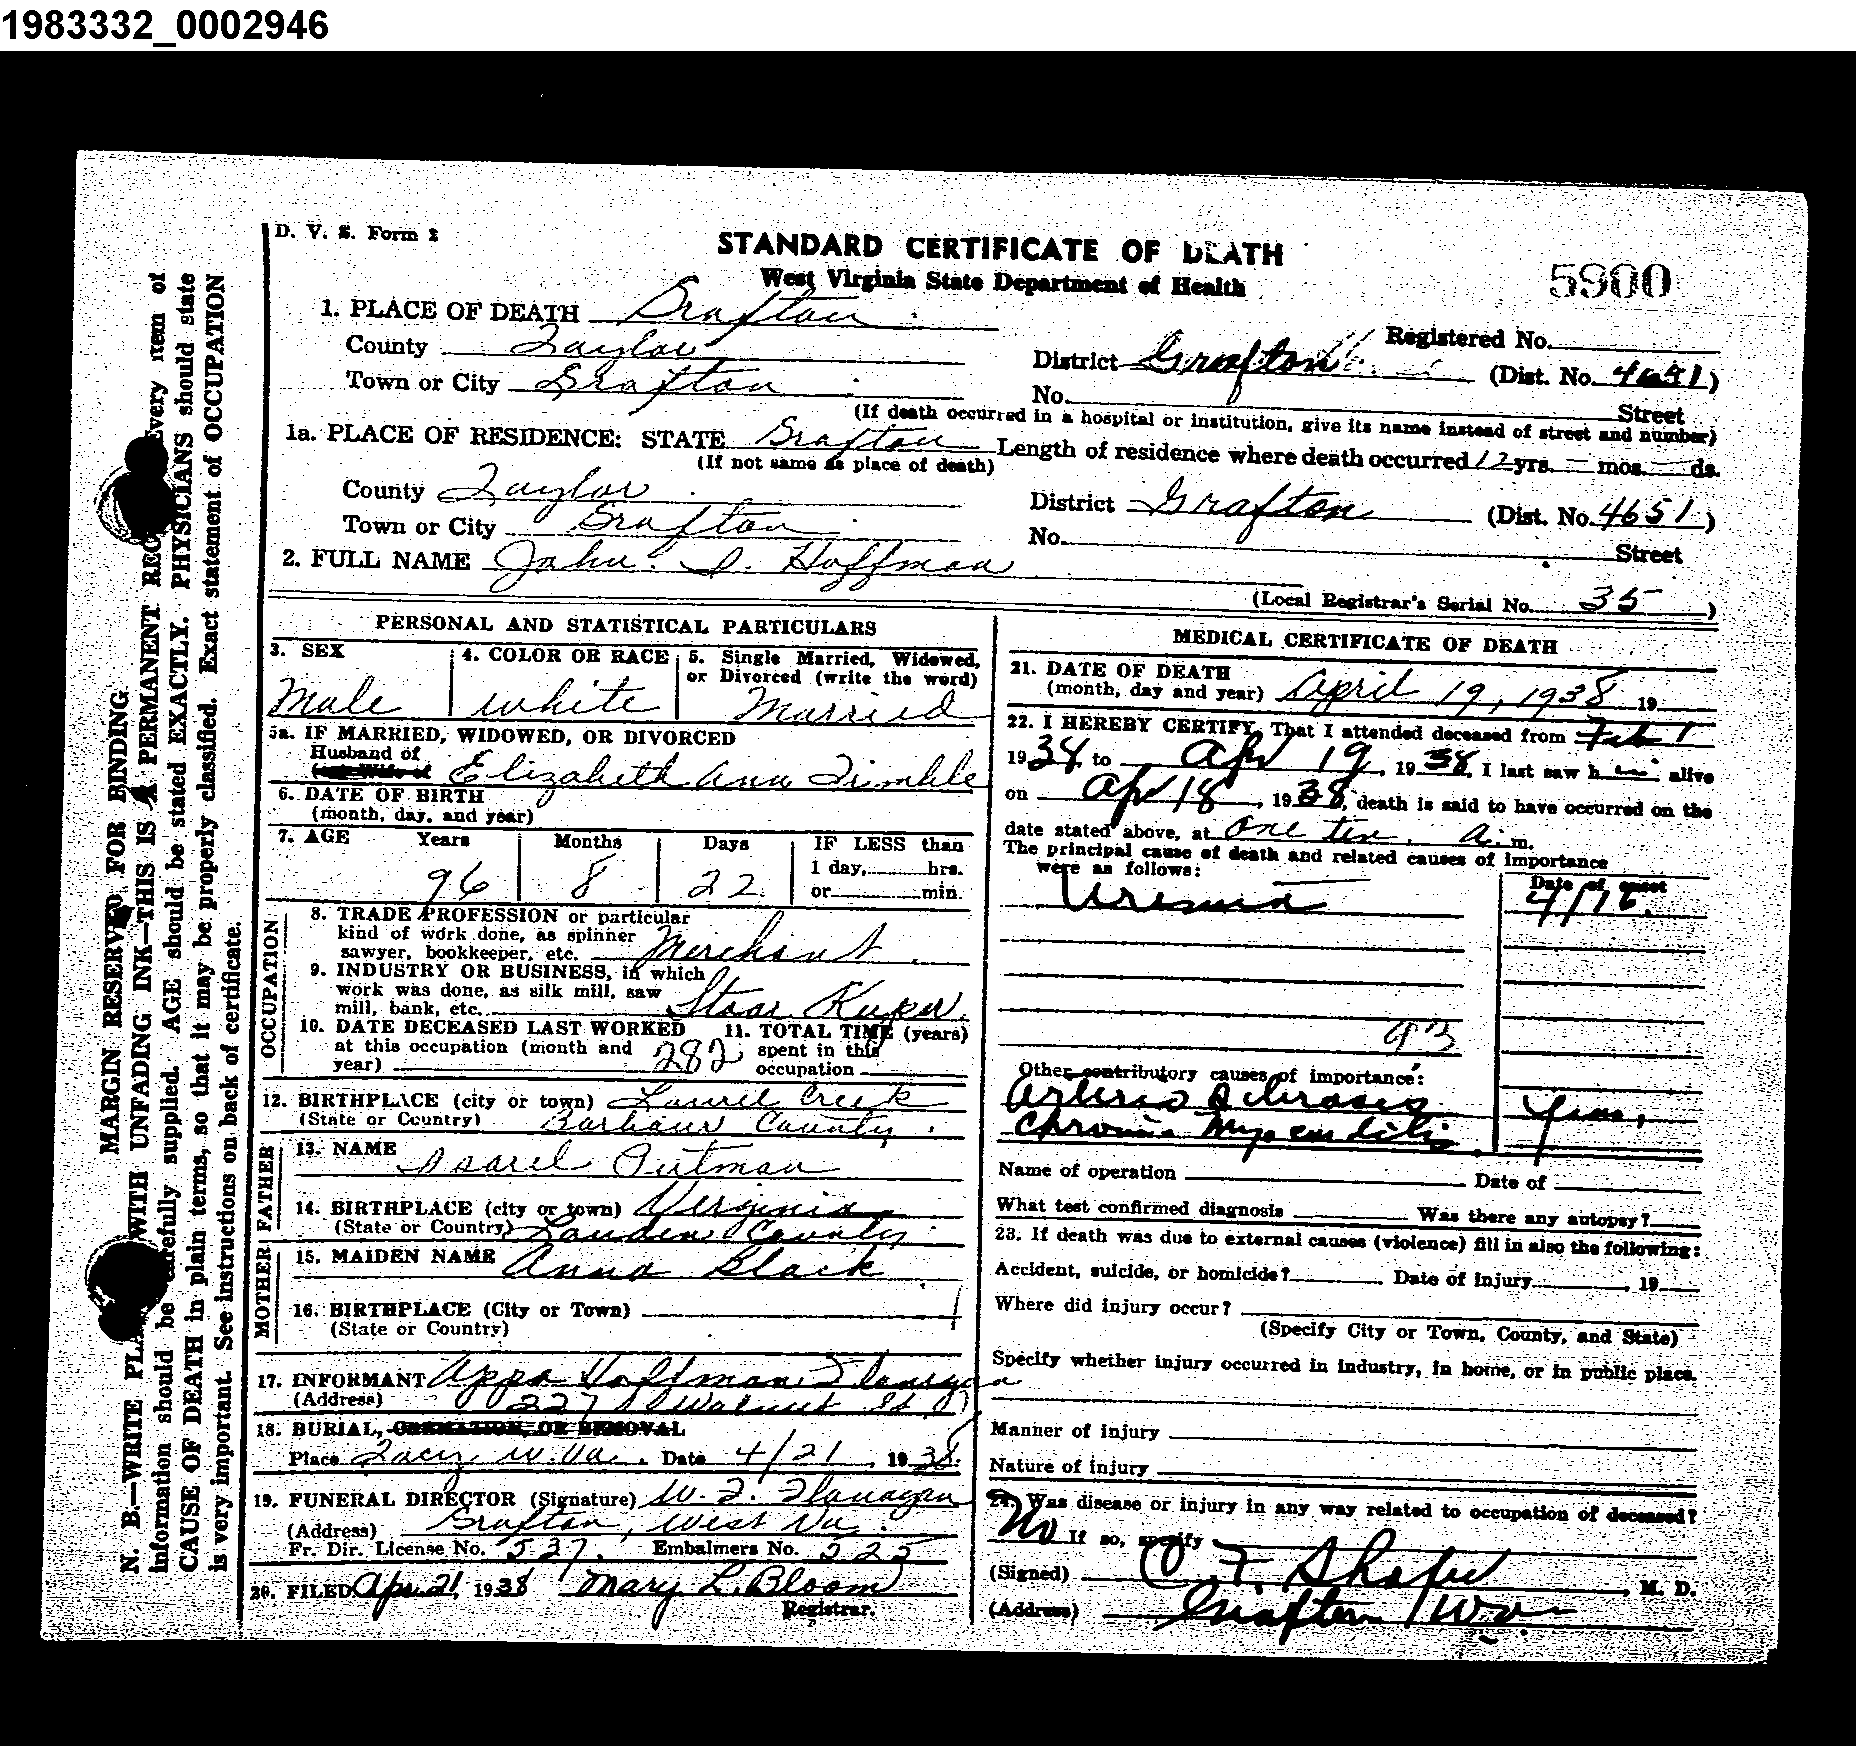 1983332_0002946
D. V. S. Form 2
STANDARD CERTIFICATE OF DEATH
West Virginia State Department of Health
5900
1. PLACE OF DEATH Grafton
Registered No.
County Taylor
District Grafton (Dist. No. 4651)
Town or City Grafton
No. Street
(If death occurred in a hospital or institution, give its name instead of street and number)
1a. PLACE OF RESIDENCE: STATE Grafton Length of residence where death occurred 12 yrs. - mos. - ds.
(If not same as place of death)
County Taylor
District Grafton (Dist. No. 4651)
Town or City Grafton
No. Street
2. FULL NAME John. I. Hoffman
(Local Registrar's Serial No. 35)
PERSONAL AND STATISTICAL PARTICULARS
3. SEX
Male
4. COLOR OR RACE
White
5. Single Married, Widowed,
or Divorced (write the word)
Married
5a. IF MARRIED, WIDOWED, OR DIVORCED
Husband of
(or) Wife of Elizabeth Ann Trimble
6. DATE OF BIRTH
(month, day, and year)
7. AGE Years Months Days IF LESS than
1 day, hrs.
96 8 22 or min.
OCCUPATION
8. TRADE PROFESSION or particular
kind of work done, as spinner
sawyer, bookkeeper, etc. Merchant
9. INDUSTRY OR BUSINESS, in which
work was done, as silk mill, saw
mill, bank, etc. Stoar Kuper
10. DATE DECEASED LAST WORKED
at this occupation (month and
year) 282
11. TOTAL TIME (years)
spent in this
occupation
12. BIRTHPLACE (city or town) Laurel Creek
(State or Country) Barbour County.
FATHER
13. NAME Isarel Putman
14. BIRTHPLACE (city or town) Verginia
(State or Country) Louden County
MOTHER
15. MAIDEN NAME Anna Black
16. BIRTHPLACE (City or Town)
(State or Country)
17. INFORMANT Appa Hoffman Flanagan
(Address) 227 Walnut St.
18. BURIAL, CREMATION, OR REMOVAL
Place Tacy W. Va. Date 4/21, 1938.
19. FUNERAL DIRECTOR (Signature) W. F. Flanagan
(Address) Grafton, West Va.
Fr. Dir. License No. 537. Embalmers No. 525
20. FILED Apr. 21, 1938 Mary L. Bloom
Registrar.
MEDICAL CERTIFICATE OF DEATH
21. DATE OF DEATH
(month, day and year) April 19, 1938 19
22. I HEREBY CERTIFY, That I attended deceased from Feb 1
1934 to Apr 19, 1938, I last saw h im alive
on Apr 18, 1938, death is said to have occurred on the
date stated above, at one ten. a. m.
The principal cause of death and related causes of importance
were as follows:
Date of onset
Uremia 4/16.
93
Other contributory causes of importance:
Arterio Sclerosis
Chronic Myocarditis
Name of operation Date of
What test confirmed diagnosis Was there any autopsy?
23. If death was due to external causes (violence) fill in also the following:
Accident, suicide, or homicide? Date of injury , 19
Where did injury occur?
(Specify City or Town, County, and State)
Specify whether injury occurred in industry, in home, or in public place.
Manner of injury
Nature of injury
24. Was disease or injury in any way related to occupation of deceased?
No If so, specify
(Signed) C. F. Shafer M. D.
(Address) Grafton WVa
MARGIN RESERVED FOR BINDING
N. B.—WRITE WITH UNFADING INK—THIS IS A PERMANENT Every item of
information should be carefully supplied. AGE should be stated EXACTLY. PHYSICIANS should state
CAUSE OF DEATH in plain terms, so that it may be properly classified. Exact statement of OCCUPATION
is very important. See instructions on back of certificate.